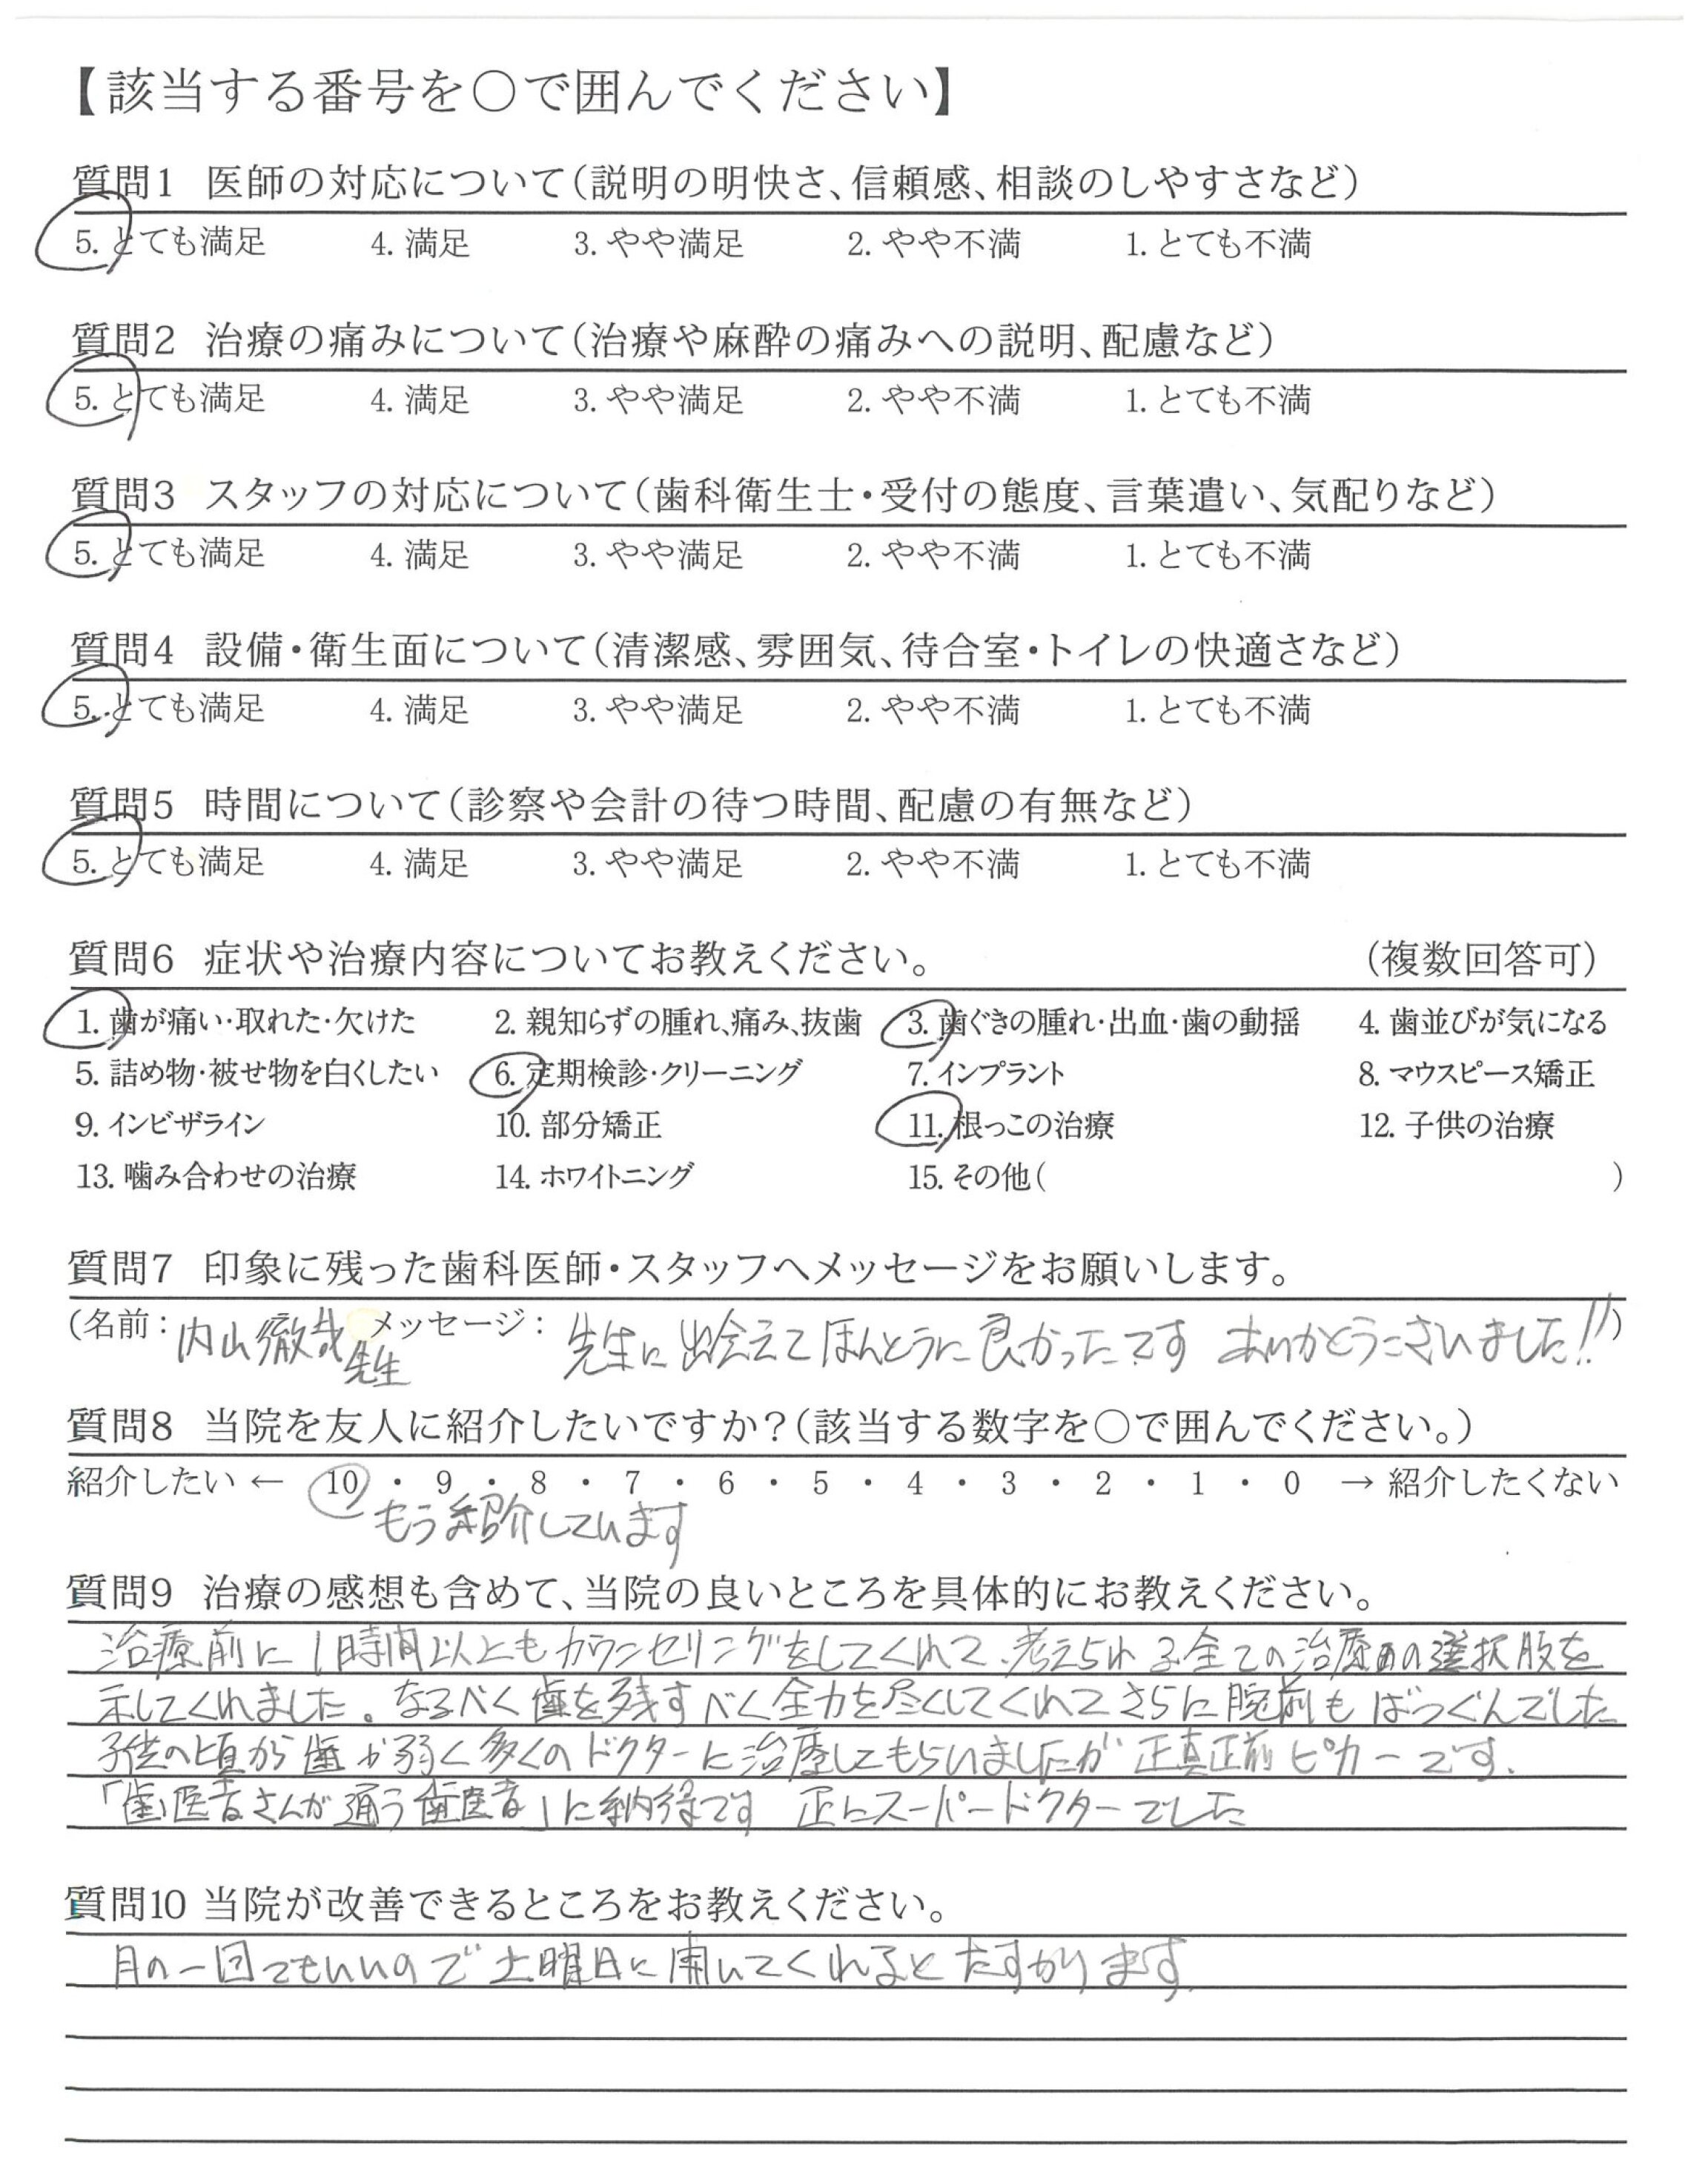 【該当する番号を〇で囲んでください】
質問1 医師の対応について(説明の明快さ、信頼感、相談のしやすさなど)
5. とても満足 4. 満足 3. やや満足 2. やや不満 1. とても不満
質問2 治療の痛みについて(治療や麻酔の痛みへの説明、配慮など)
5. とても満足 4. 満足 3. やや満足 2. やや不満 1. とても不満
質問3 スタッフの対応について(歯科衛生士・受付の態度、言葉遣い、気配りなど)
5. とても満足 4. 満足 3. やや満足 2. やや不満 1. とても不満
質問4 設備・衛生面について(清潔感、雰囲気、待合室・トイレの快適さなど)
5. とても満足 4. 満足 3. やや満足 2. やや不満 1. とても不満
質問5 時間について(診察や会計の待つ時間、配慮の有無など)
5. とても満足 4. 満足 3. やや満足 2. やや不満 1. とても不満
質問6 症状や治療内容についてお教えください。 (複数回答可)
1. 歯が痛い・取れた・欠けた 2. 親知らずの腫れ、痛み、抜歯 3. 歯ぐきの腫れ・出血・歯の動揺 4. 歯並びが気になる
5. 詰め物・被せ物を白くしたい 6. 定期検診・クリーニング 7. インプラント 8. マウスピース矯正
9. インビザライン 10. 部分矯正 11. 根っこの治療 12. 子供の治療
13. 噛み合わせの治療 14. ホワイトニング 15. その他( )
質問7 印象に残った歯科医師・スタッフへメッセージをお願いします。
(名前: 内山徹哉先生 メッセージ: 先生に出会えてほんとうに良かったです ありがとうございました!!)
質問8 当院を友人に紹介したいですか?(該当する数字を〇で囲んでください。)
紹介したい ← 10 ・ 9 ・ 8 ・ 7 ・ 6 ・ 5 ・ 4 ・ 3 ・ 2 ・ 1 ・ 0 → 紹介したくない
もう紹介しています
質問9 治療の感想も含めて、当院の良いところを具体的にお教えください。
治療前に1時間以上もカウンセリングをしてくれて、考えられる全ての治療の選択肢を
示してくれました。なるべく歯を残すべく全力を尽くしてくれてさらに腕前もばつぐんでした
子供の頃から歯が弱く多くのドクターに治療してもらいましたが正真正前ピカ一です.
「歯医者さんが通う歯医者」に納得です 正にスーパードクターでした
質問10 当院が改善できるところをお教えください。
月の一回でもいいので土曜日に開いてくれるとたすかります